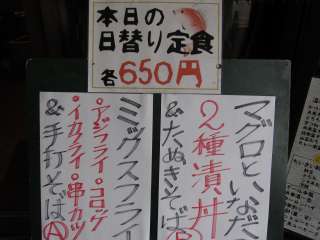 本日の
日替り定食
各650円
マグロといなだ
2種漬丼
&たぬきそば
B
ミックスフライ
・アジフライ・コロッケ
・イカフライ・串カツ
&手打そば
A